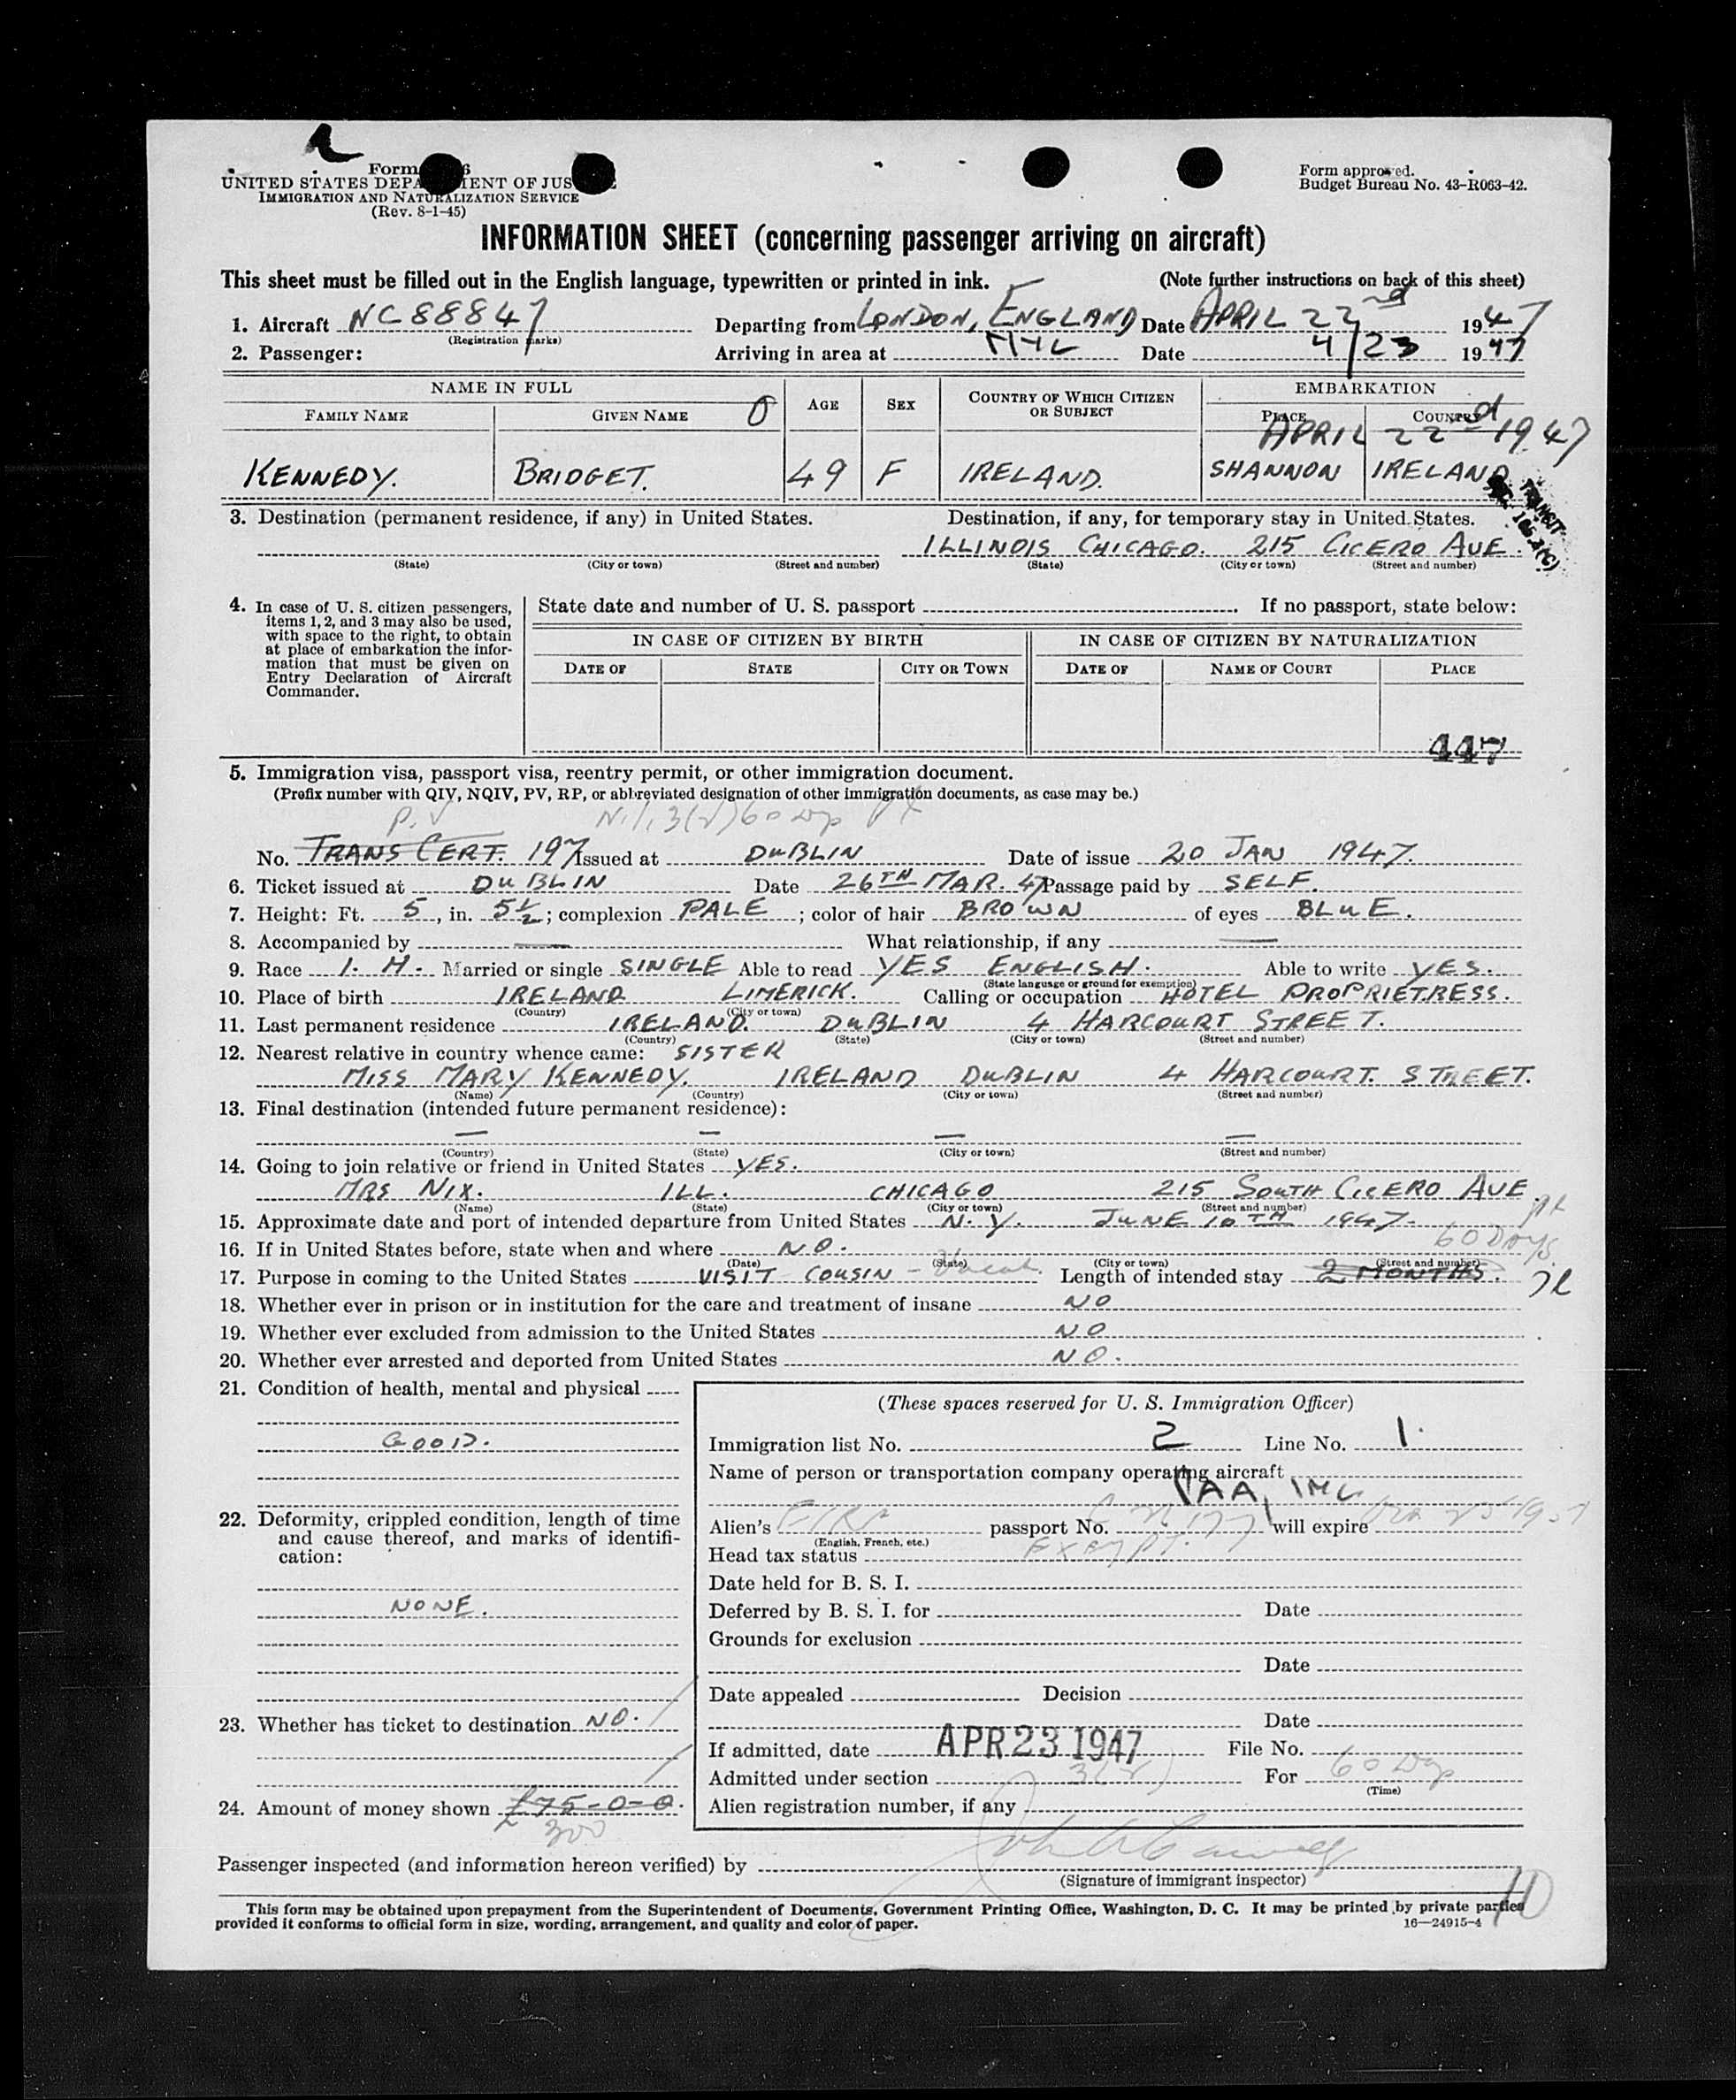 Form 6
UNITED STATES DEPA MENT OF JUS
IMMIGRATION AND NATURALIZATION SERVICE
(Rev. 8-1-45)
Form approved.
Budget Bureau No. 43-R063-42.
INFORMATION SHEET (concerning passenger arriving on aircraft)
This sheet must be filled out in the English language, typewritten or printed in ink. (Note further instructions on back of this sheet)
1. Aircraft NC 88847 Departing from LONDON, ENGLAND Date APRIL 22nd 1947
(Registration marks)
2. Passenger: Arriving in area at Date 4/23 1947
NAME IN FULL AGE SEX COUNTRY OF WHICH CITIZEN OR SUBJECT EMBARKATION
FAMILY NAME GIVEN NAME PLACE COUNTRY
APRIL 22nd 1947
KENNEDY. BRIDGET. 49 F IRELAND. SHANNON IRELAND
TRANSIT
3. Destination (permanent residence, if any) in United States. Destination, if any, for temporary stay in United States.
ILLINOIS CHICAGO. 215 CICERO AVE.
(State) (City or town) (Street and number) (State) (City or town) (Street and number)
4. In case of U. S. citizen passengers, items 1, 2, and 3 may also be used, with space to the right, to obtain at place of embarkation the information that must be given on Entry Declaration of Aircraft Commander.
State date and number of U. S. passport . If no passport, state below:
IN CASE OF CITIZEN BY BIRTH IN CASE OF CITIZEN BY NATURALIZATION
DATE OF STATE CITY OR TOWN DATE OF NAME OF COURT PLACE
447
5. Immigration visa, passport visa, reentry permit, or other immigration document.
(Prefix number with QIV, NQIV, PV, RP, or abbreviated designation of other immigration documents, as case may be.)
P.V
No. TRANS CERT. 197 Issued at DUBLIN Date of issue 20 JAN 1947.
6. Ticket issued at DUBLIN Date 26TH MAR. 47 Passage paid by SELF.
7. Height: Ft. 5, in. 5½; complexion PALE; color of hair BROWN of eyes BLUE.
8. Accompanied by — What relationship, if any —
9. Race I. H. Married or single SINGLE Able to read YES ENGLISH. Able to write YES.
(State language or ground for exemption)
10. Place of birth IRELAND LIMERICK. Calling or occupation HOTEL PROPRIETRESS.
(Country) (City or town)
11. Last permanent residence IRELAND. DUBLIN 4 HARCOURT STREET.
(Country) (State) (City or town) (Street and number)
12. Nearest relative in country whence came: SISTER
MISS MARY KENNEDY. IRELAND DUBLIN 4 HARCOURT. STREET.
(Name) (Country) (City or town) (Street and number)
13. Final destination (intended future permanent residence):
— — — —
(Country) (State) (City or town) (Street and number)
14. Going to join relative or friend in United States YES.
MRS NIX. ILL. CHICAGO 215 SOUTH CICERO AVE.
(Name) (State) (City or town) (Street and number)
15. Approximate date and port of intended departure from United States N. Y. JUNE 10TH 1947.
60 Days
16. If in United States before, state when and where NO.
(Date) (State) (City or town) (Street and number)
17. Purpose in coming to the United States VISIT COUSIN - Length of intended stay 2 MONTHS.
18. Whether ever in prison or in institution for the care and treatment of insane NO
19. Whether ever excluded from admission to the United States NO
20. Whether ever arrested and deported from United States NO.
21. Condition of health, mental and physical
GOOD.
22. Deformity, crippled condition, length of time and cause thereof, and marks of identification:
NONE.
23. Whether has ticket to destination NO.
24. Amount of money shown £75-0-0.
300
(These spaces reserved for U. S. Immigration Officer)
Immigration list No. 2 Line No. 1.
Name of person or transportation company operating aircraft
PAA, INC
Alien's passport No. will expire
(English, French, etc.)
Head tax status EXEMPT.
Date held for B. S. I.
Deferred by B. S. I. for Date
Grounds for exclusion
Date
Date appealed Decision
Date
If admitted, date APR 23 1947 File No.
Admitted under section 3(2) For 60 Dys
(Time)
Alien registration number, if any
Passenger inspected (and information hereon verified) by
(Signature of immigrant inspector)
10
This form may be obtained upon prepayment from the Superintendent of Documents, Government Printing Office, Washington, D. C. It may be printed by private parties
provided it conforms to official form in size, wording, arrangement, and quality and color of paper. 16—24915-4